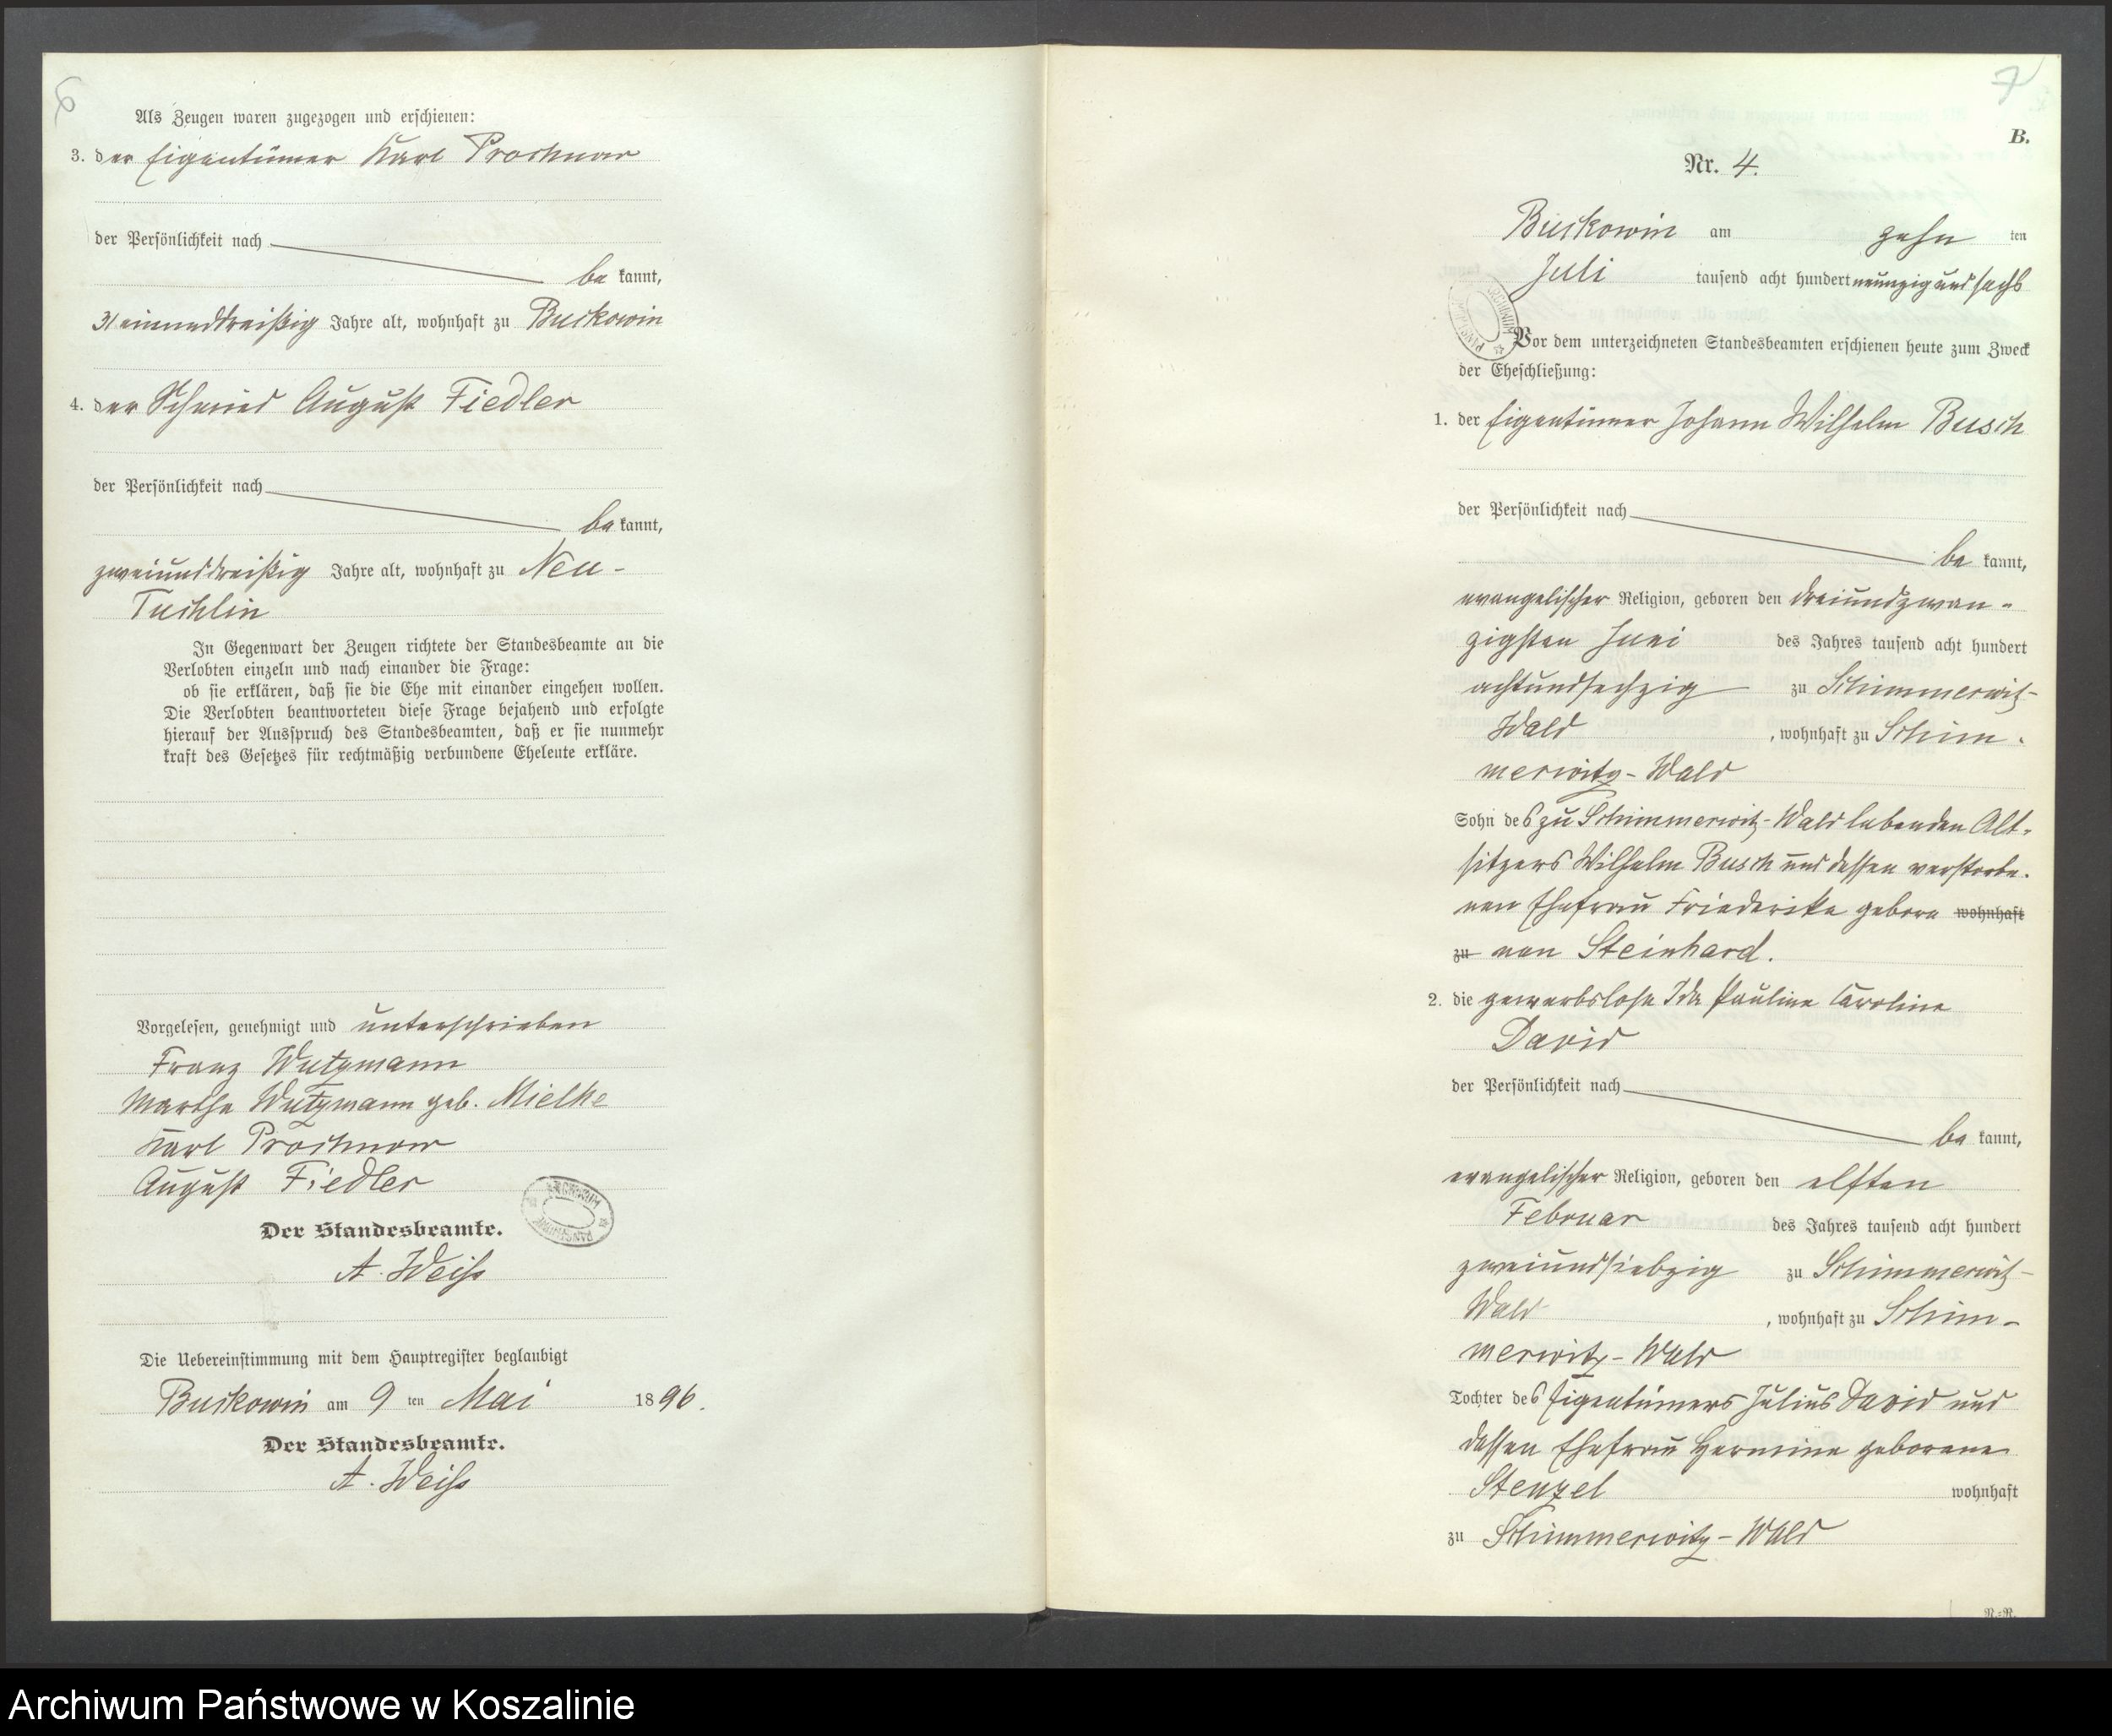 6
Als Zeugen waren zugezogen und erschienen:
3. der Eigentümer Karl Prochnow
der Persönlichkeit nach
be kannt,
31 einunddreißig Jahre alt, wohnhaft zu Buckowin
4. der Schmied August Fiedler
der Persönlichkeit nach
be kannt,
zweiunddreißig Jahre alt, wohnhaft zu Neu-
Tuchlin
In Gegenwart der Zeugen richtete der Standesbeamte an die
Verlobten einzeln und nach einander die Frage:
ob sie erklären, daß sie die Ehe mit einander eingehen wollen.
Die Verlobten beantworteten diese Frage bejahend und erfolgte
hierauf der Ausspruch des Standesbeamten, daß er sie nunmehr
kraft des Gesetzes für rechtmäßig verbundene Eheleute erkläre.
Vorgelesen, genehmigt und unterschrieben
Franz Wutzmann
Martha Wutzmann geb. Mielke
Karl Prochnow
August Fiedler
ARCHIWUM PAŃSTWOWE
Der Standesbeamte.
A. Weiss
Die Uebereinstimmung mit dem Hauptregister beglaubigt
Buckowin am 9 ten Mai 1896.
Der Standesbeamte.
A. Weiss
7
B.
Nr. 4.
Buckowin am zehn ten
Juli tausend acht hundert neunzig und sechs
ARCHIWUM PAŃSTWOWE
Vor dem unterzeichneten Standesbeamten erschienen heute zum Zweck
der Eheschließung:
1. der Eigentümer Johann Wilhelm Busch
der Persönlichkeit nach
be kannt,
evangelischer Religion, geboren den dreiundzwan-
zigsten Juni des Jahres tausend acht hundert
achtundsechzig zu Schimmerwitz-
Wald, wohnhaft zu Schim-
merwitz-Wald
Sohn des zu Schimmerwitz-Wald lebenden Alt-
sitzers Wilhelm Busch und dessen verstorbe-
nen Ehefrau Friederike gebore wohnhaft
zu nen Steinhard.
2. die gewerbslose Ida Pauline Caroline
David
der Persönlichkeit nach
be kannt,
evangelischer Religion, geboren den elften
Februar des Jahres tausend acht hundert
zweiundsiebzig zu Schimmerwitz-
Wald, wohnhaft zu Schim-
merwitz-Wald
Tochter des Eigentümers Julius David und
dessen Ehefrau Hermine geborene
Stenzel wohnhaft
zu Schimmerwitz-Wald
N.=R.
Archiwum Państwowe w Koszalinie